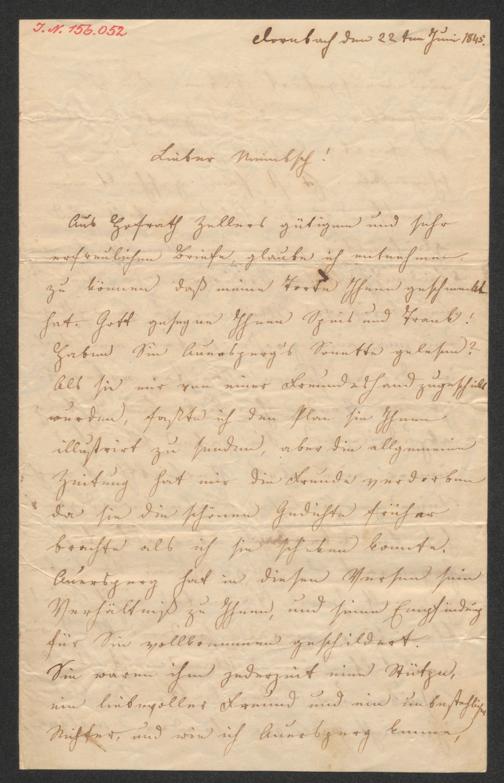 J. N. 156.052
Dornbach den 22ten Juni 1845.
Lieber Niembsch!
Aus Hofrath Zellers gütigem und sehr
erfreulichen Briefe, glaube ich entnehmen
zu können daß meine Torte Ihnen geschmeckt
hat. Gott gesegne Ihnen Speis und Trank!
Haben Sie Auersperg's Sonette gelesen?
Als sie mir von einer Freundeshand zugeschickt
wurden, faßte ich den Plan sie Ihnen
illustrirt zu senden, aber die allgemeine
Zeitung hat mir die Freude verdorben
da sie die schönen Gedichte früher
brachte als ich sie schicken konnte.
Auersperg hat in diesen Versen sein
Verhältniß zu Ihnen, und seine Empfindung
für Sie vollkommen geschildert.
Sie waren ihm jederzeit eine Stütze,
ein liebevoller Freund und ein unbestechlicher
Richter, und wie ich Auersperg kenne,